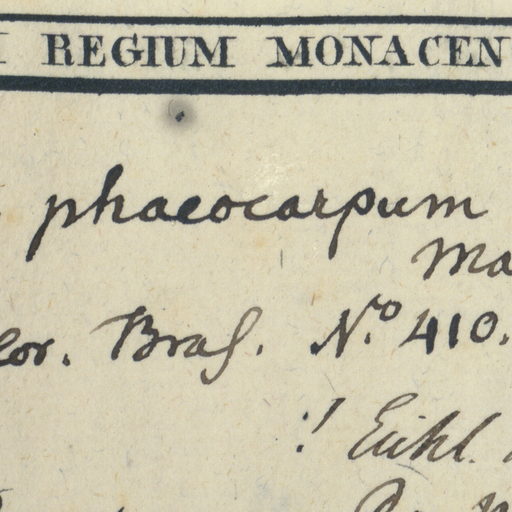 REGIUM MONACEN
phaeocarpum
Ma
lor. Bras. N.o 410.
! Eichl.